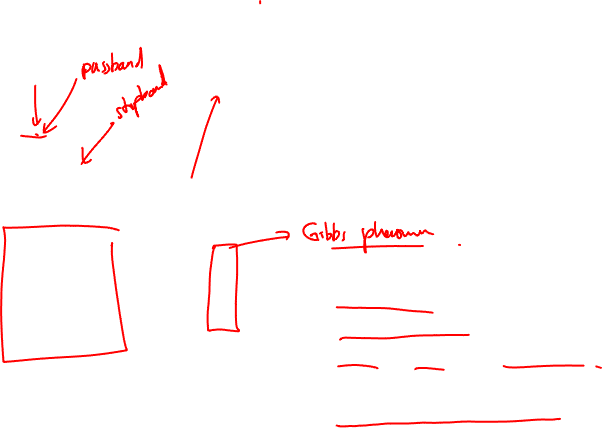 passband
stopband
Gibbs phenomenon